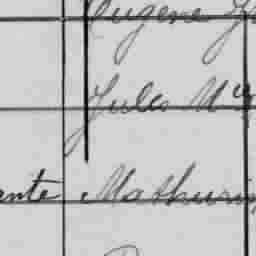 Eugène
Jules
ente Mathurin